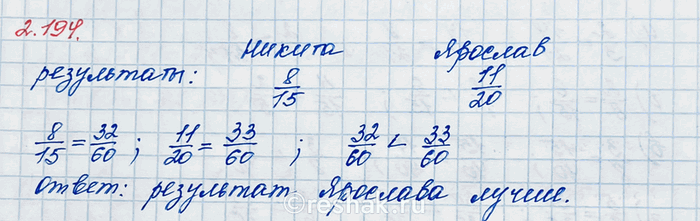 2.194.
Никита Ярослав
результаты: 8/15 11/20
8/15 = 32/60 ; 11/20 = 33/60 ; 32/60 < 33/60
Ответ: результат Ярослава лучше.
©reshak.ru